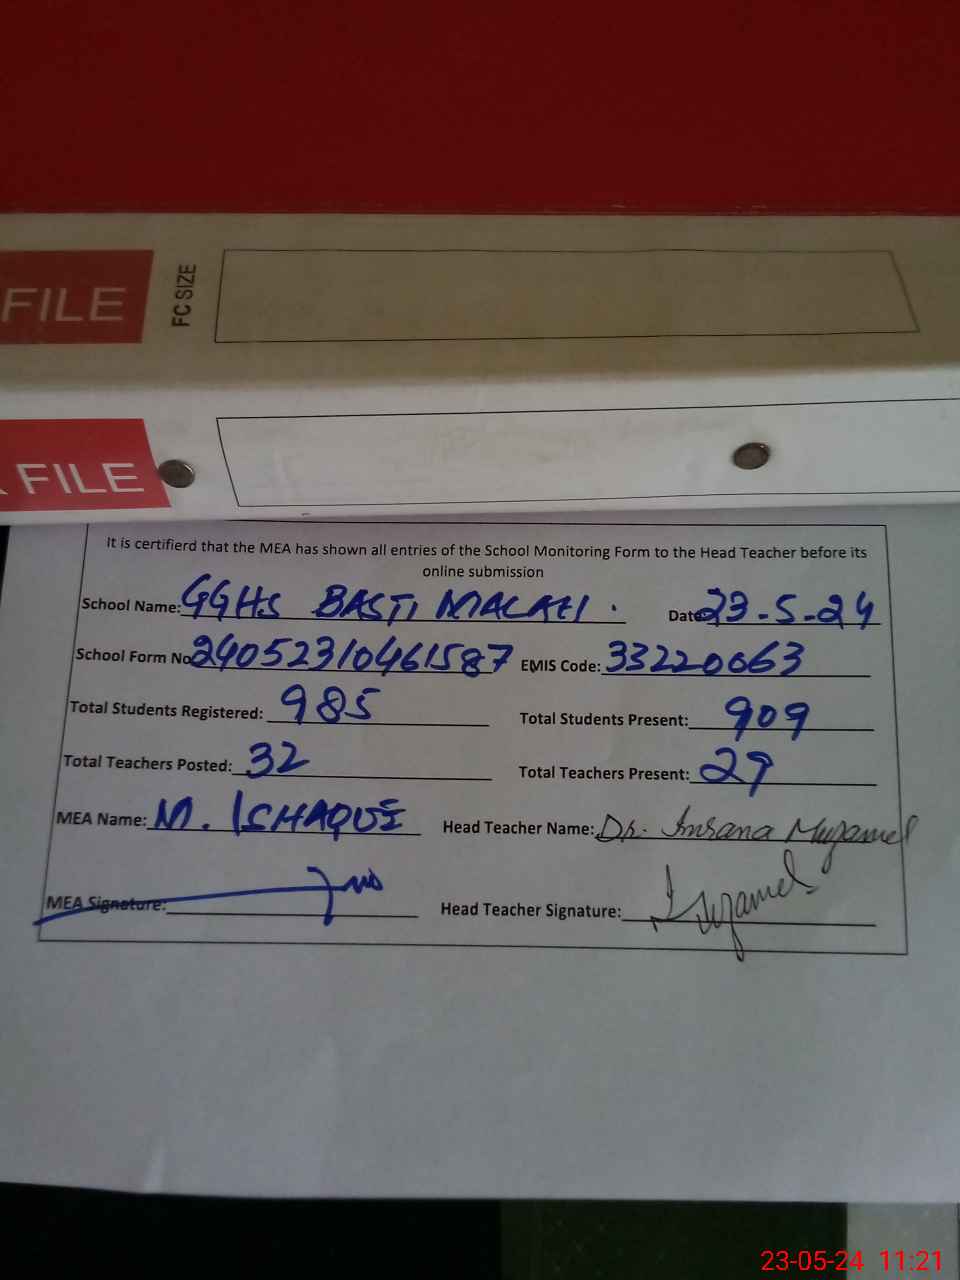 FILE
FC SIZE
FILE
It is certifierd that the MEA has shown all entries of the School Monitoring Form to the Head Teacher before its
online submission
School Name: GGHS BASTI Date 23-5-24
School Form No 24052310461587 EMIS Code: 33220063
Total Students Registered: 985 Total Students Present: 909
Total Teachers Posted: 32 Total Teachers Present: 29
MEA Name: M. ISHAQUE Head Teacher Name: Dr. Imrana Muzamel
MEA Signature: Head Teacher Signature: Muzamel
23-05-24 11:21